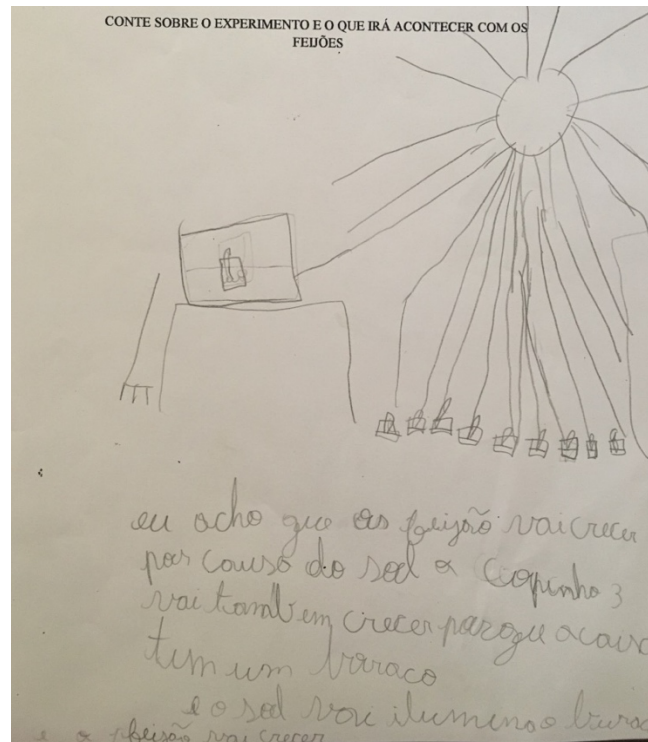 CONTE SOBRE O EXPERIMENTO E O QUE IRÁ ACONTECER COM OS
FEIJÕES
eu acho que os feijão vai crecer
por causo do sol o Copinho 3
vai também crecer porque a caix
tem um buraco
e o sol vai ilumina o burac
e o feijão vai crecer